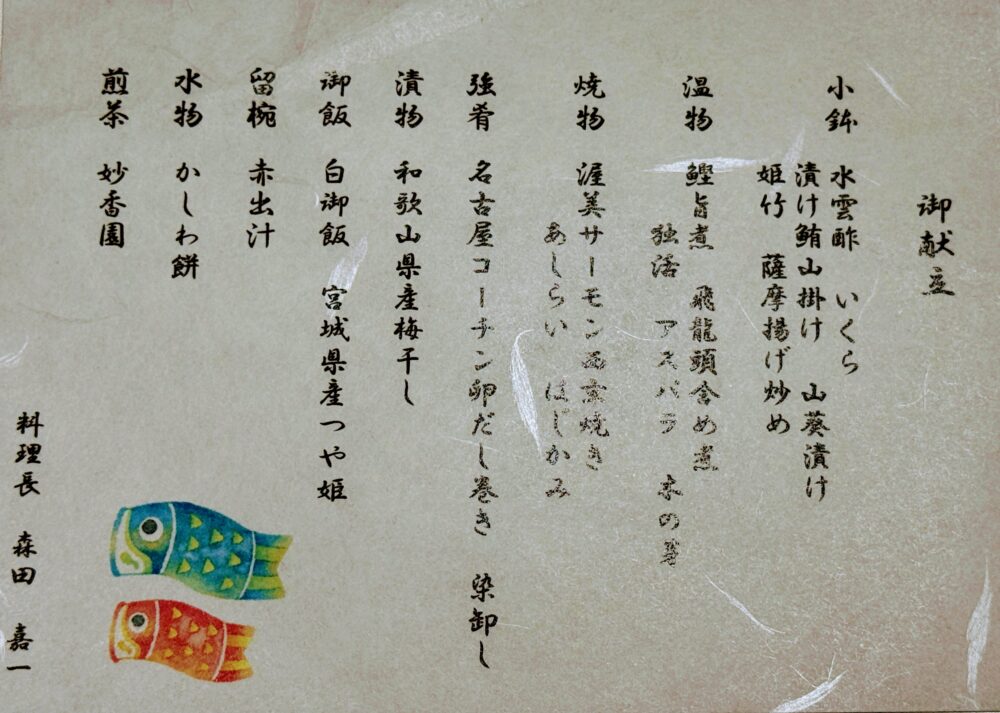 御献立
小鉢 水雲酢 いくら
漬け鮪山掛け 山葵漬け
姫竹 薩摩揚げ炒め
温物 鰹旨煮 飛龍頭含め煮
独活 アスパラ 木の芽
焼物 渥美サーモン西京焼き
あしらい はじかみ
強肴 名古屋コーチン卵だし巻き 染卸し
漬物 和歌山県産梅干し
御飯 白御飯 宮城県産つや姫
留椀 赤出汁
水物 かしわ餅
煎茶 妙香園
料理長 森田 嘉一